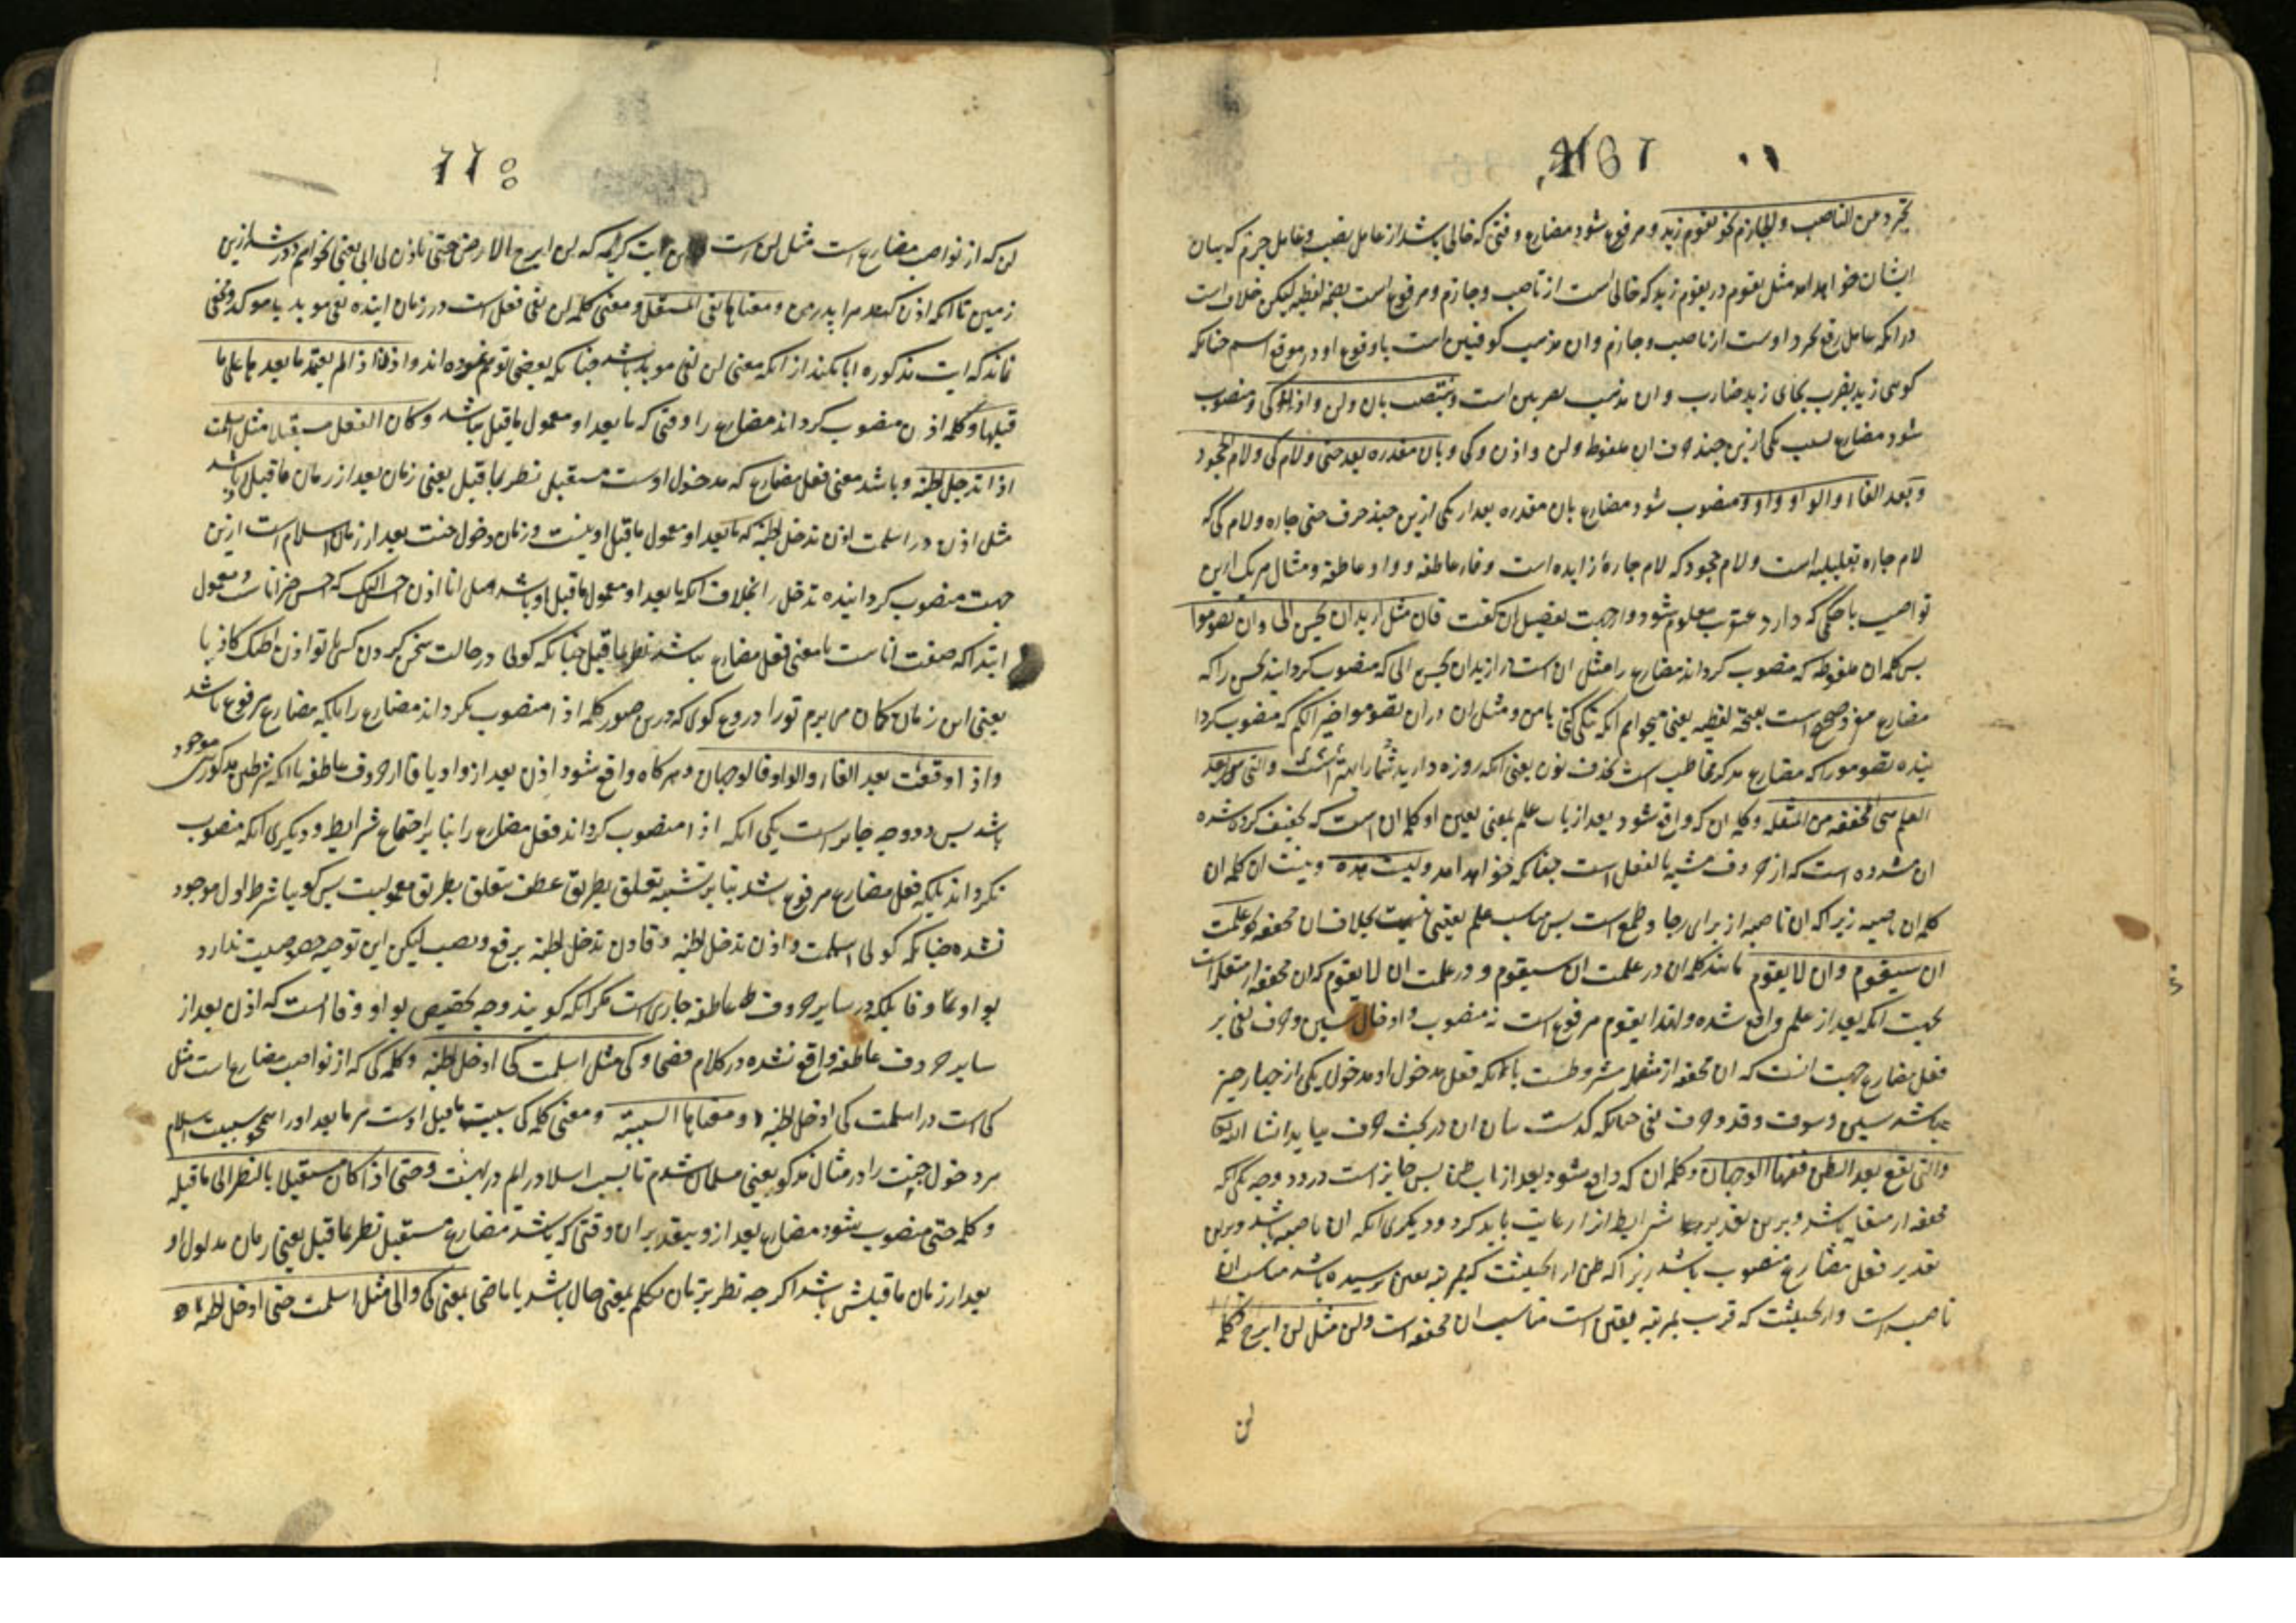 167
تجرد من الناصب والجازم نحو یقوم زید و مرفوع شود مضارع وقتی که خالی باشد از عامل نصب و عامل جزم که بیان
ایشان خواهد امد مثل یقوم در یقوم زید که خالی است از ناصب و جازم و مرفوع است بضمه لفظیه لیکن خلاف است
در انکه عامل رفع تجرد اوست از ناصب و جازم و ان مذهب کوفیین است یا وقوع او در موقع اسم چنانکه
کوئی زید یضرب بجای زید ضارب و ان مذهب بصریین است وینتصب بان ولن واذن وکی و منصوب
شود مضارع بسبب یکی ازین چند حرف ان ملفوظ ولن و اذن و کی و بان مقدره بعد حتی ولام کی ولام الجحود
وبعد الفاء والواو واو و منصوب شود مضارع بان مقدره بعد از یکی ازین چند حرف حتی جاره و لام کی که
لام جاره تعلیلیه است و لام جحود که لام جاره زایده است و فاء عاطفه و واو عاطفه و مثال هر یک ازین
نواصب با حکمی که دارد عنقریب معلوم شود و از جهت تفصیل ان گفت فان مثل ارید ان تحسن الی وان تصوموا
پس کلمه ان ملفوظه که منصوب کرداند مضارع را مثل ان است در ارید ان تحسن الی که منصوب کردانیده تحسن را که
مضارع مفرد صحیح است بفتحه لفظیه یعنی میخواهم انکه نیکی کنی با من و مثل ان در ان تصوموا خیر لکم که منصوب کردا
نیده تصوموا را که مضارع مذکر مخاطب است بحذف نون یعنی انکه روزه دارید شما را بهتر است والتی تقع بعد
العلم هی المخففه من المثقله و کلمه ان که واقع شود بعد از باب علم بمعنی یقین او کلمه ان است که تخفیف کرده شده
ان مشدده است که از حروف مشبه بالفعل است چنانکه خواهد امد ولیست هذه و نیست ان کلمه ان
کلمه ان ناصبه زیرا که ان ناصبه از برای رجا و طمع است پس مناسب علم یقینی نیست بخلاف ان مخففه نحو علمت
ان سیقوم وان لا یقوم مانند کلمه ان در علمت ان سیقوم و در علمت ان لا یقوم که ان مخففه از مثقله است
بجهت انکه بعد از علم واقع شده و لهذا یقوم مرفوع است نه منصوب و ادخال سین و حرف نفی بر
فعل مضارع جهت انست که ان مخففه از مثقله مشروطست بانکه فعل مدخول او مدخول یکی از چهار چیز
باشد سین و سوف و قد و حرف نفی چنانکه گذشت بیان ان در بحث حرف بیاید انشا الله تعا
والتی تقع بعد الظن ففیها الوجهان و کلمه ان که واقع شود بعد از باب ظن پس جایز است درو دو وجه یکی انکه
مخففه از مثقله باشد و برین تقدیر شرایط انرا رعایت باید کرد و دیکری انکه ان ناصبه باشد و برین
تقدیر فعل مضارع منصوب باشد زیرا که ظن از انحیثیت که بمرتبه یقین نرسیده باشد مناسب ان
ناصبه است و از انحیثیت که قریب بمرتبه یقین است مناسب ان مخففه است ولن مثل لن ابرح کلمه
لن
لن که از نواصب مضارع است مثل لن است در این ایت کریمه که لن ابرح الارض حتی یاذن لی ابی یعنی نخواهم دور شد ازین
زمین تا انکه اذن کند مرا پدر من و معناها نفی المستقبل و معنی کلمه لن نفی فعل است در زمان اینده نفی موبد یا موکد و مخفی
نماند که ایت مذکوره ابا میکند از انکه معنی لن نفی موبد باشد چنانکه بعضی توهم نموده اند واذن اذا لم یعتمد ما بعدها علی ما
قبلها و کلمه اذن منصوب کرداند مضارع را وقتی که ما بعد او معمول ماقبل نباشد وکان الفعل مستقبلا مثل اسلمت
اذا تدخل الجنه و باشد معنی فعل مضارع که مدخول اوست مستقبل نظر بماقبل یعنی زمان بعد از زمان ماقبل باشد
مثل اذن در اسلمت اذن تدخل الجنه که ما بعد او معمول ماقبل او نیست و زمان دخول جنت بعد از زمان اسلام است ازین
جهت منصوب کردانیده تدخل را بخلاف انکه ما بعد او معمول ماقبل او باشد مثل انا اذن احسن الیک که احسن خبر انا است و معمول
ابتدا که صفت انا ست یا معنی فعل مضارع نباشد نظر بماقبل چنانکه کوئی در حالت سخن کردن کسی با تو اذن اظنک کاذبا
یعنی این زمان کمان می برم تو را دروغ کوی که درین صور کلمه اذا منصوب نکرداند مضارع را بلکه مضارع مرفوع باشد
واذا وقعت بعد الفاء والواو فالوجهان و هرکاه واقع شود اذن بعد از واو یا فا از حروف عاطفه با انکه شرطین مذکورین موجود
باشد پس درو دو وجه جایز است یکی انکه اذا منصوب کرداند فعل مضارع را بنا بر اجتماع شرایط و دیکری انکه منصوب
نکرداند بلکه فعل مضارع مرفوع باشد بنا بر تشبیه تعلق بطریق عطف بتعلق بطریق معمولیت پس کویا شرط اول موجود
نشده چنانکه کوئی اسلمت واذن تدخل الجنه و فاذن تدخل الجنه برفع و نصب لیکن این توجیه خصوصیت ندارد
بواو و فا بلکه در سایر حروف عاطفه جاری است مکر انکه کویند وجه تخصیص بواو و فا انست که اذن بعد از
سایر حروف عاطفه واقع نشده در کلام فصحا وکی مثل اسلمت کی ادخل الجنه و کلمه کی که از نواصب مضارع است مثل
کی است در اسلمت کی ادخل الجنه و معناها السببیه و معنی کلمه کی سببیت ماقبل اوست مر ما بعد او را همچو سببیت اسلام
مر دخول جنت را در مثال مذکور یعنی مسلمان شدم تا بسبب اسلام درایم در بهشت وحتی اذا کان مستقبلا بالنظر الی ماقبله
و کلمه حتی منصوب شود مضارع بعد از و بتقدیر ان وقتی که باشد مضارع مستقبل نظر بماقبل یعنی زمان مدلول او
بعد از زمان ماقبلش باشد اکرچه نظر بزمان تکلم بمعنی حال باشد یا ماضی بمعنی کی والی مثل اسلمت حتی ادخل الجنه